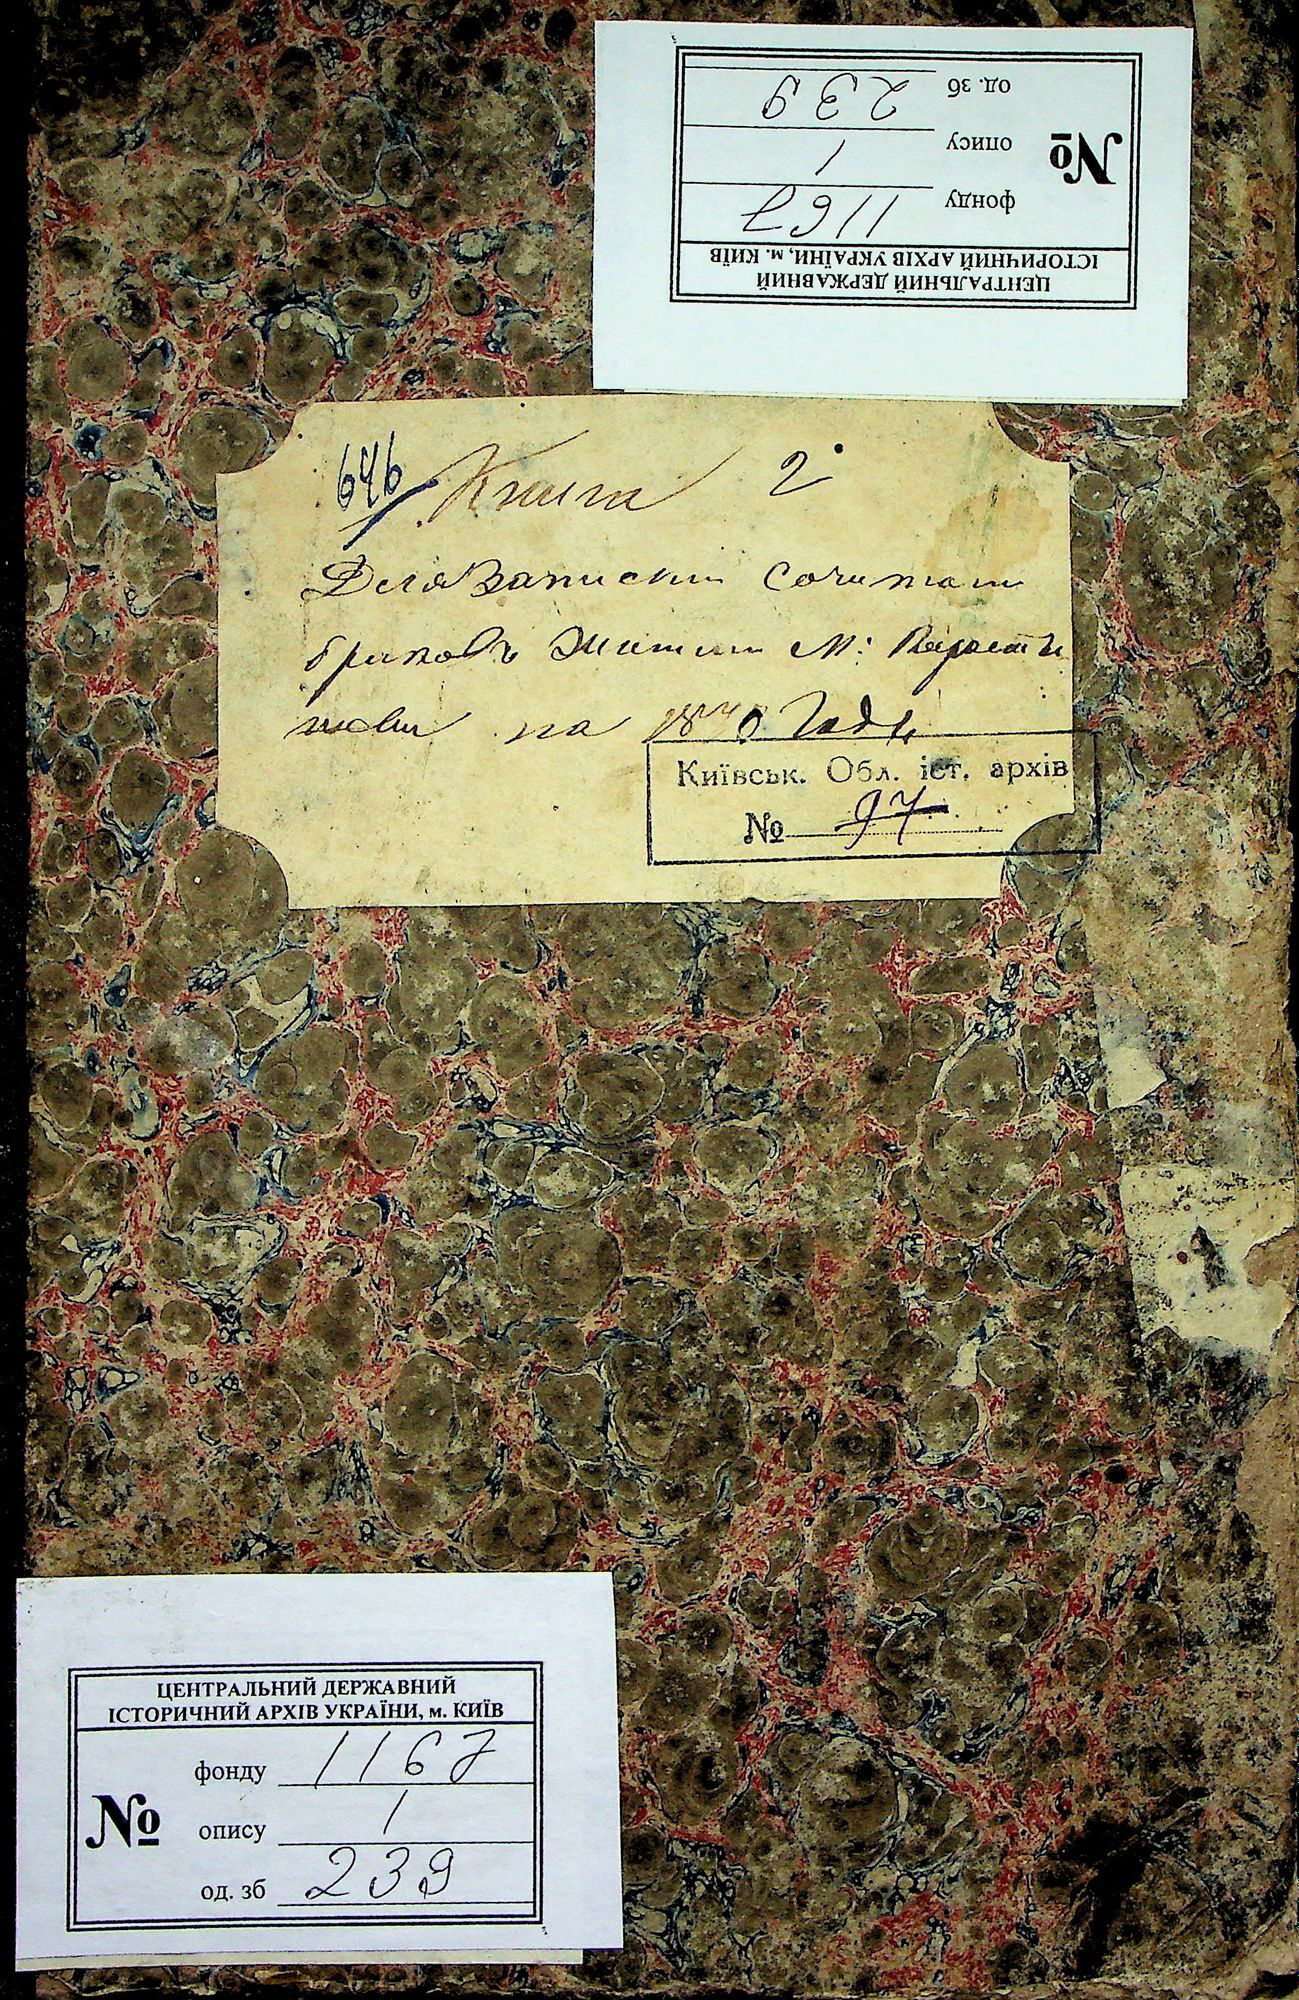 ЦЕНТРАЛЬНИЙ ДЕРЖАВНИЙ
ІСТОРИЧНИЙ АРХІВ УКРАЇНИ, м. КИЇВ
№
фонду 1167
опису 1
од. зб 239
646 Книга 2
Для Записки
браковъ М:
на Годъ
Київськ. Обл. іст. архів
№ 97
ЦЕНТРАЛЬНИЙ ДЕРЖАВНИЙ
ІСТОРИЧНИЙ АРХІВ УКРАЇНИ, м. КИЇВ
№
фонду 1167
опису 1
од. зб 239